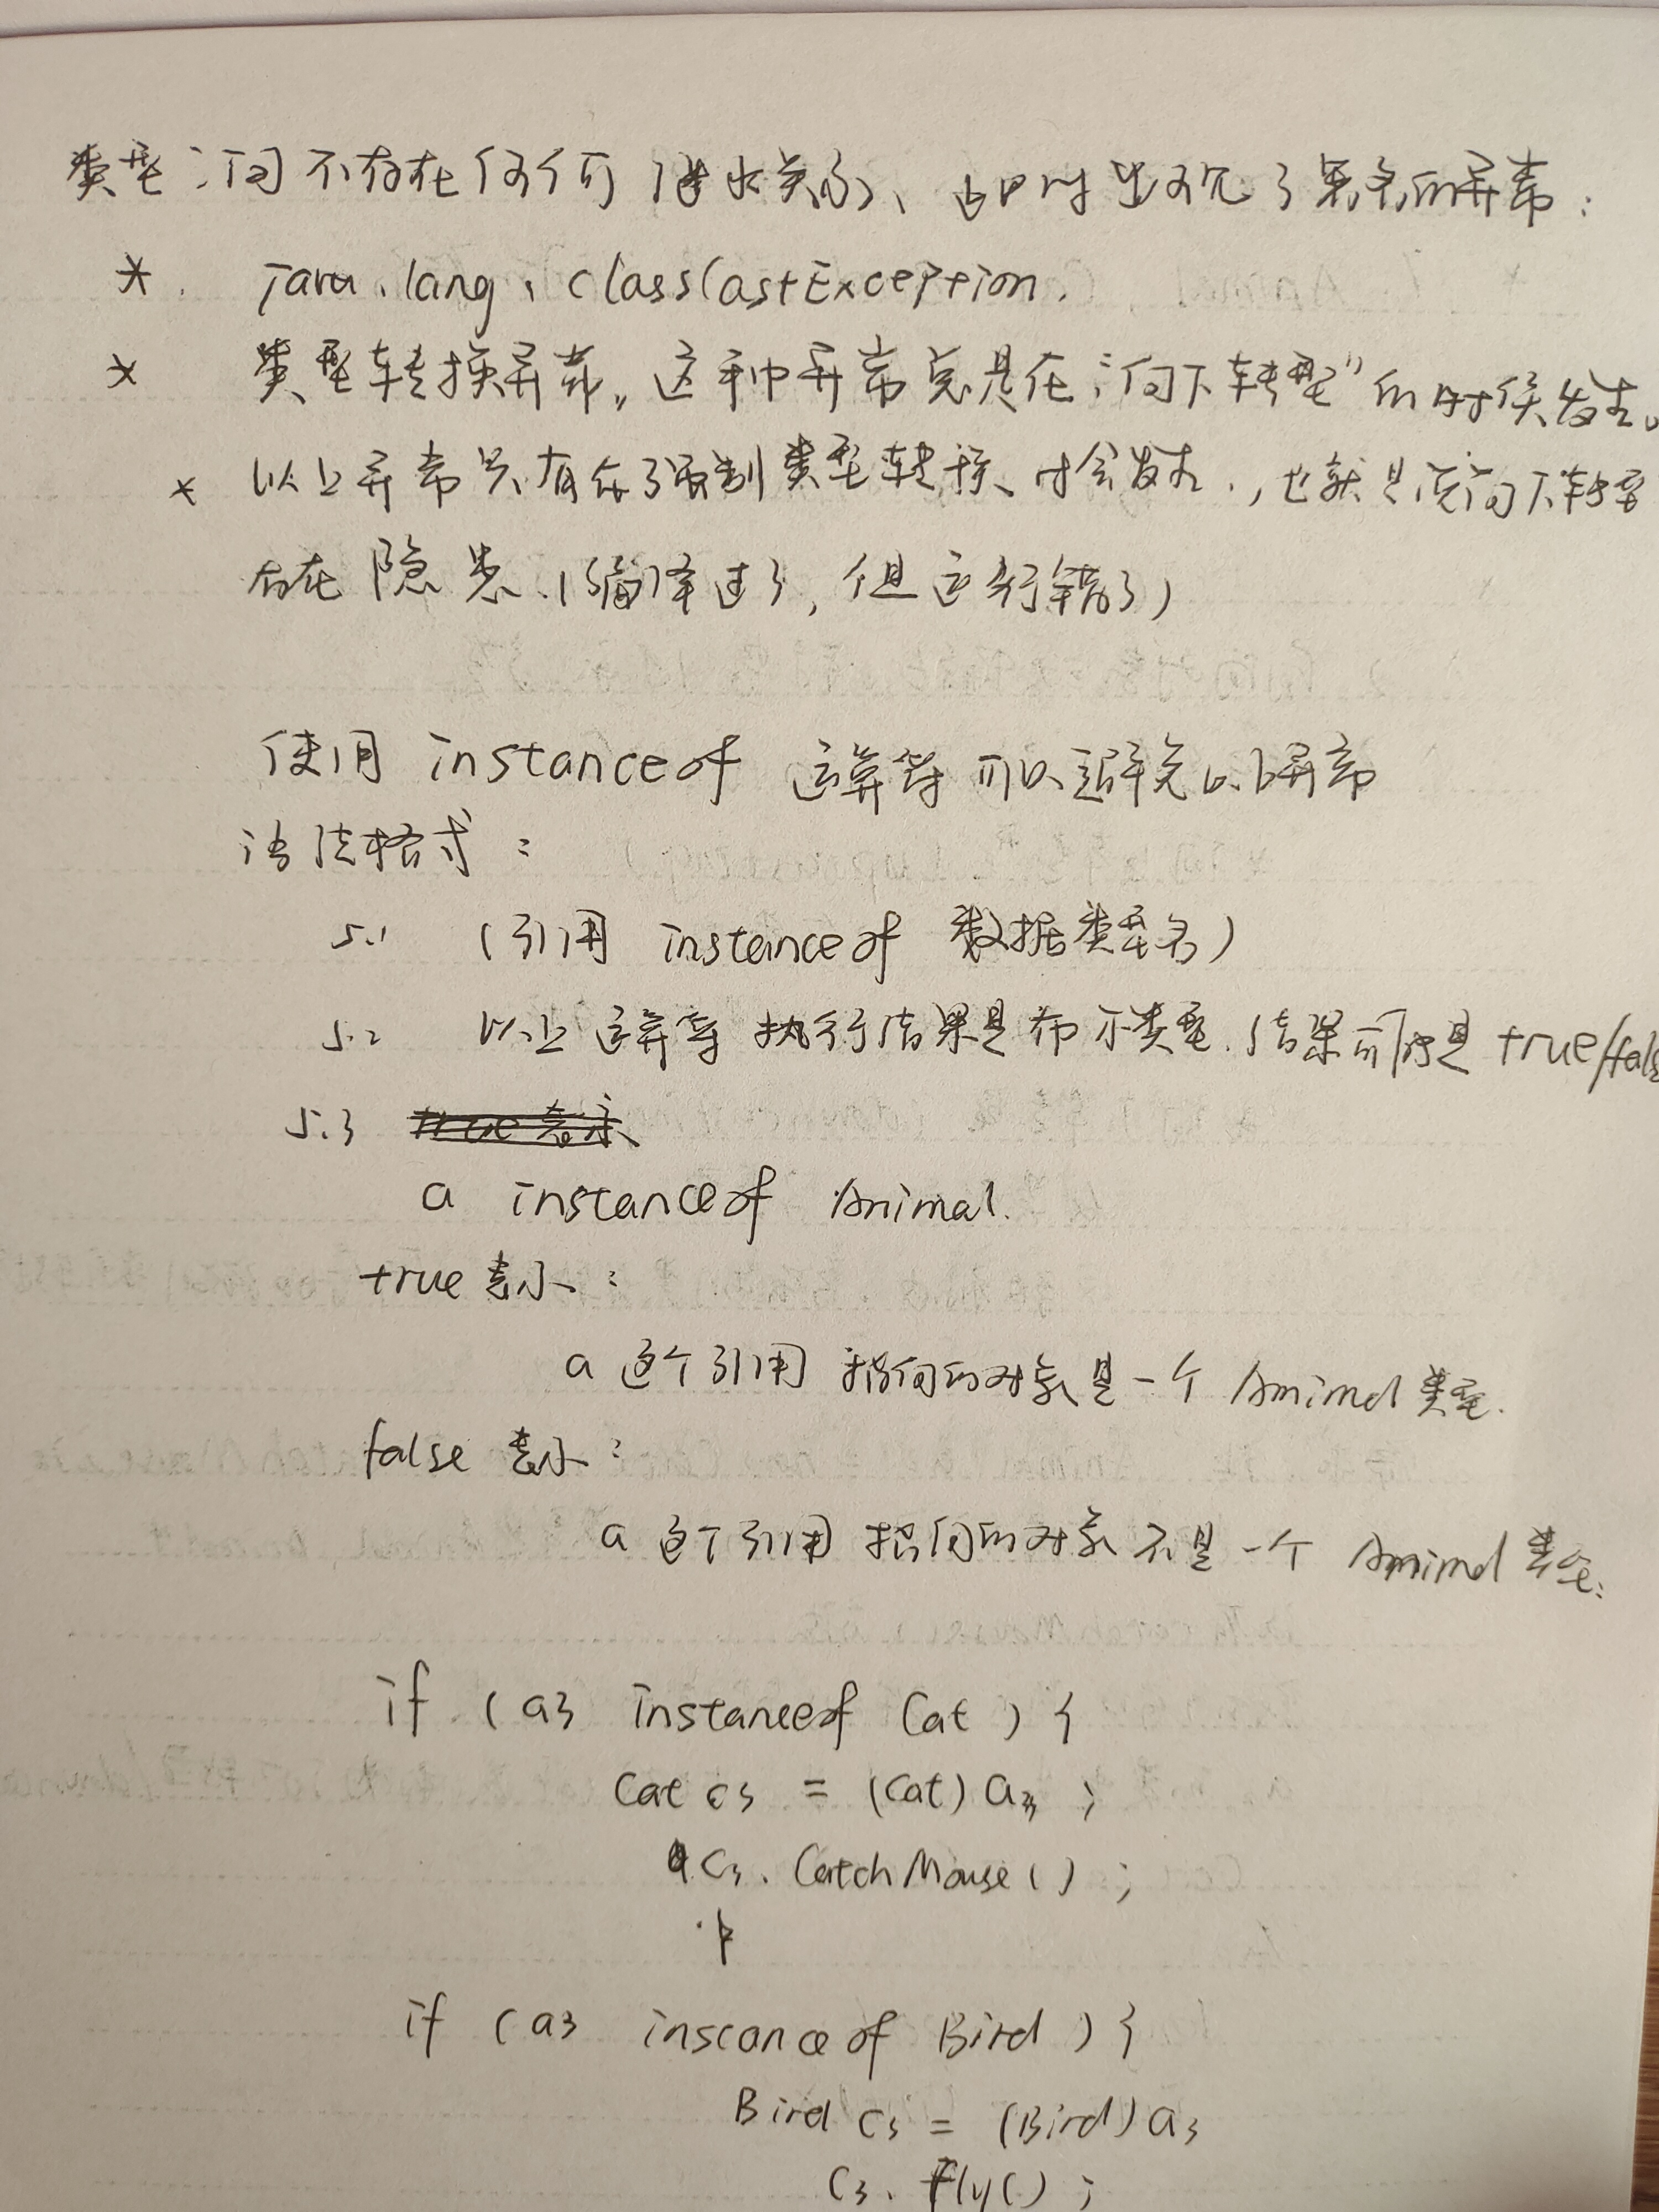 类型之间不存在任何继承关系、此时出现了著名的异常:
* java.lang.ClassCastException.
* 类型转换异常。这种异常总是在"向下转型"的时候发生。
* 以上异常只有在强制类型转换时会发生.,也就是说向下转型
存在隐患.(编译过了,但运行错了)
使用 instanceof 运算符可以避免以上异常
语法格式:
5.1 (引用 instanceof 数据类型名)
5.2 以上运算符执行结果是布尔类型.结果可能是 true/fals
5.3
a instanceof Animal.
true表示:
a 这个引用指向的对象是一个 Animal 类型.
false 表示:
a 这个引用指向的对象不是一个 Animal 类型.
if (a3 instanceof Cat) {
Cat c3 = (Cat) a3 ;
c3. CatchMouse() ;
}
if (a3 instanceof Bird) {
Bird c3 = (Bird) a3
c3. Fly() ;